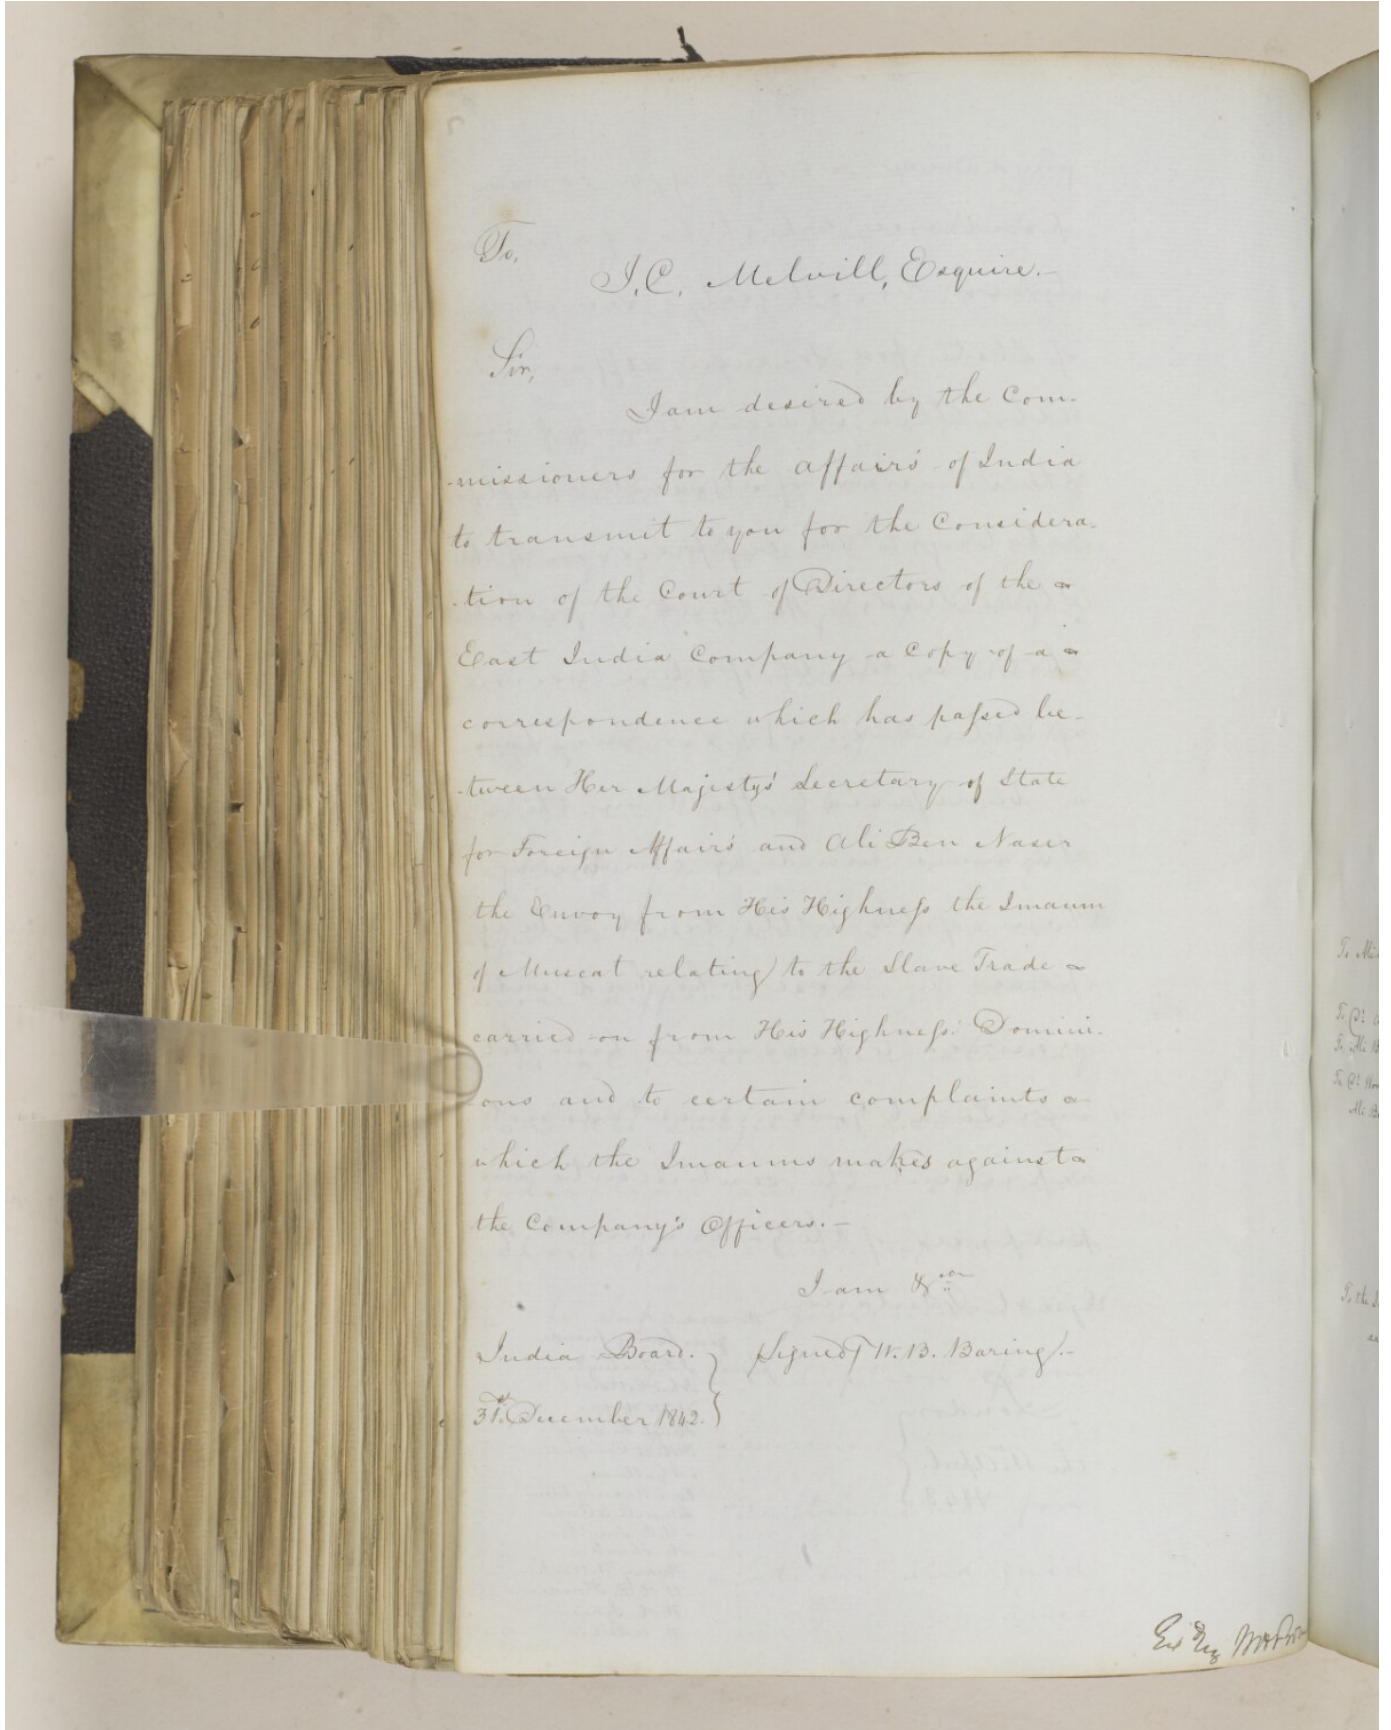 To,
J. C. Melvill, Esquire.-
Sir,
I am desired by the Com-
-missioners for the affairs of India
to transmit to you for the Considera-
-tion of the Court of Directors of the
East India Company a copy of a
correspondence which has passed be-
-tween Her Majesty's Secretary of State
for Foreign Affairs and Ali Ben Naser
the Envoy from His Highness the Imaum
of Muscat relating to the Slave Trade
carried on from His Highness' Domini-
ons and to certain complaints
which the Imaums makes against
the Company's Officers.-
I am &ca
India Board. } Signed/ W. B. Baring/.-
31st December 1842. }
To Ali
To the